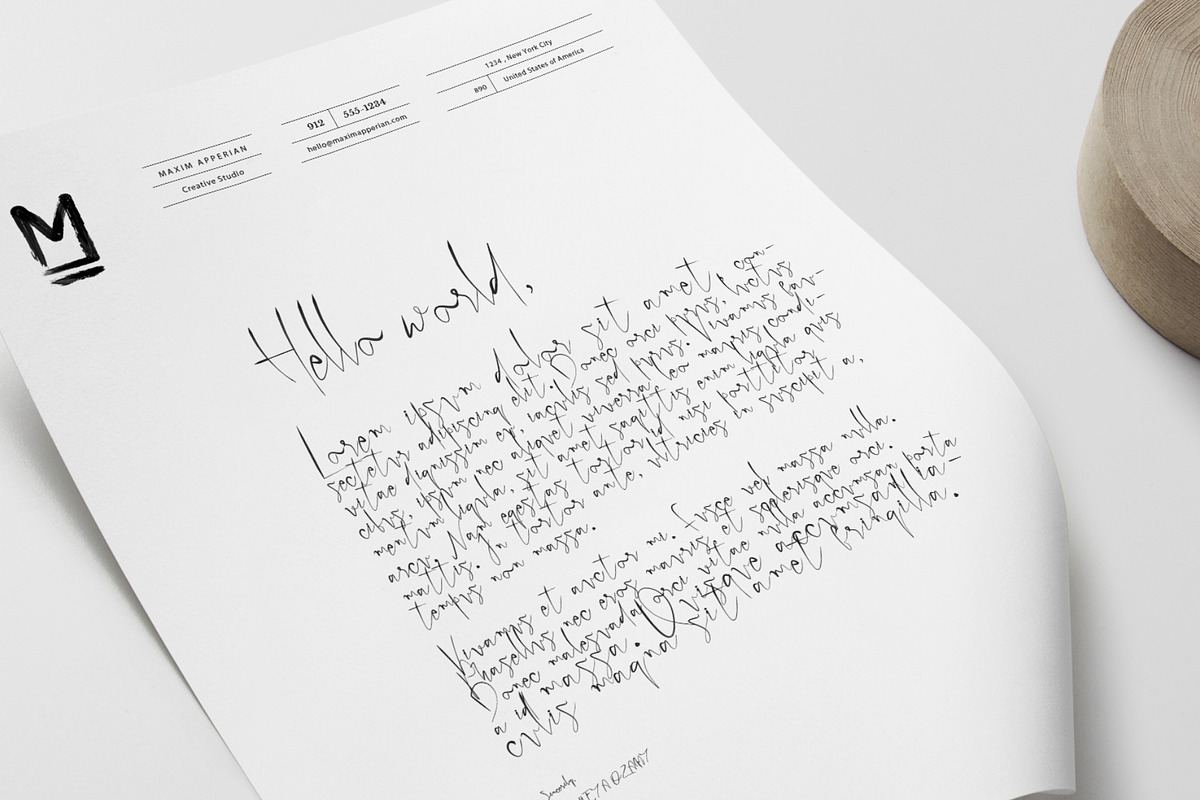 M
MAXIM APPERIAN
Creative Studio
912 | 555-1234
hello@maximapperian.com
1234 , New York City
890 | United States of America
Hello world,
Lorem ipsum dolor sit amet, con-
sectetus adipiscing elit. Donec orci purus, luctus
vitae dignissim eu, iaculis sed purus. Vivamus fau-
cibus, ipsum nec aliquet viverra, leo mauris condi-
mentum ligula, sit amet sagittis enim ligula quis
arcu. Nam egestas tortor id nisi porttitor
mattis. In tortor ante, ultricies in suscipit a,
tempus non massa.
Vivamus et auctor mi. Fusce vel massa nulla.
Phasellus nec eros mauris et scelerisque orci.
Donec malesuada orci vitae nulla accumsan porta
a id massa. Quisque accumsan ia-
culis magna sit amet fringilla.
Sincerely,